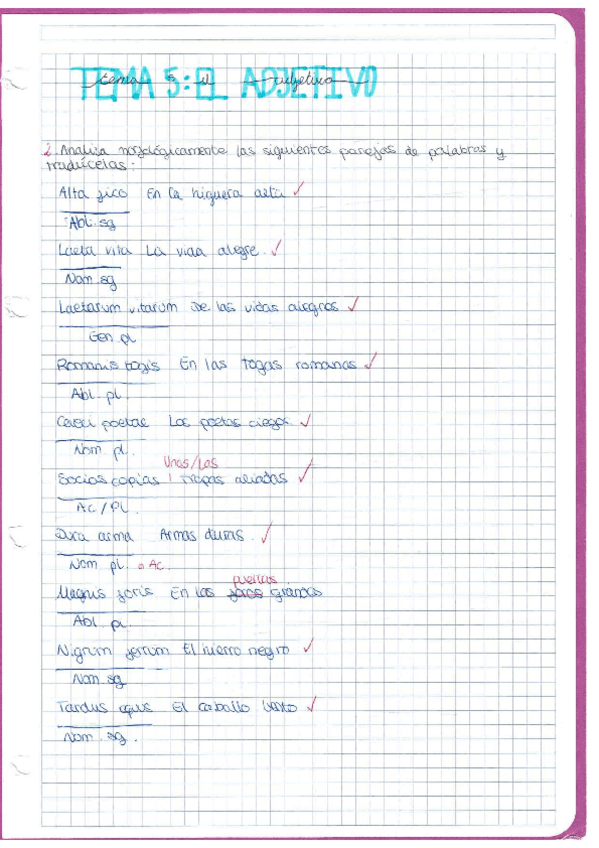 TEMA 5: EL ADJETIVO
tema 5 el adjetivo
2. Analiza morfológicamente las siguientes parejas de palabras y
tradúcelas:
Alta fico En la higuera alta ✓
Abl. sg
Laeta vita La vida alegre. ✓
Nom. sg
Laetarum vitarum De las vidas alegres ✓
Gen. pl
Romanis togis En las togas romanas ✓
Abl. pl.
Caeci poetae Los poetas ciegos ✓
Nom. pl.
Unas/Las
Socias copias tropas aliadas ✓
AC/PL.
Dura arma Armas duras. ✓
Nom pl. o Ac.
puertas
Magnis foris En las foros grandes
Abl. pl.
Nigrum ferrum El hierro negro ✓
Nom. sg
Tardus equus El caballo lento ✓
Nom. sg.